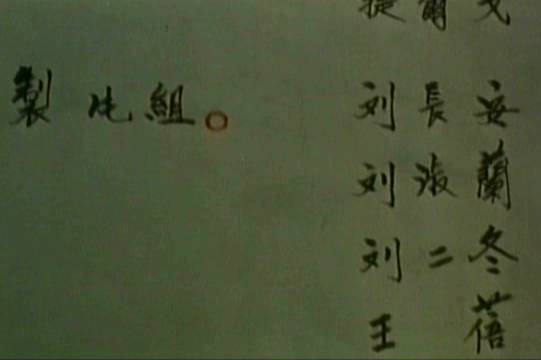 製片組。
刘長安
刘淑蘭
刘二冬
王 蓓